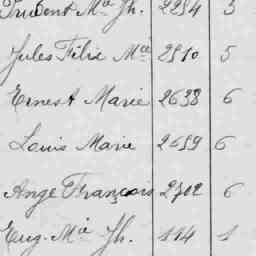 Prudent Mie Jh. 2294 5
Jules Félix Mie 2510 5
Ernest Marie 2638 6
Louis Marie 2659 6
Ange François 2702 6
Eug. Mie Jh. 114 1